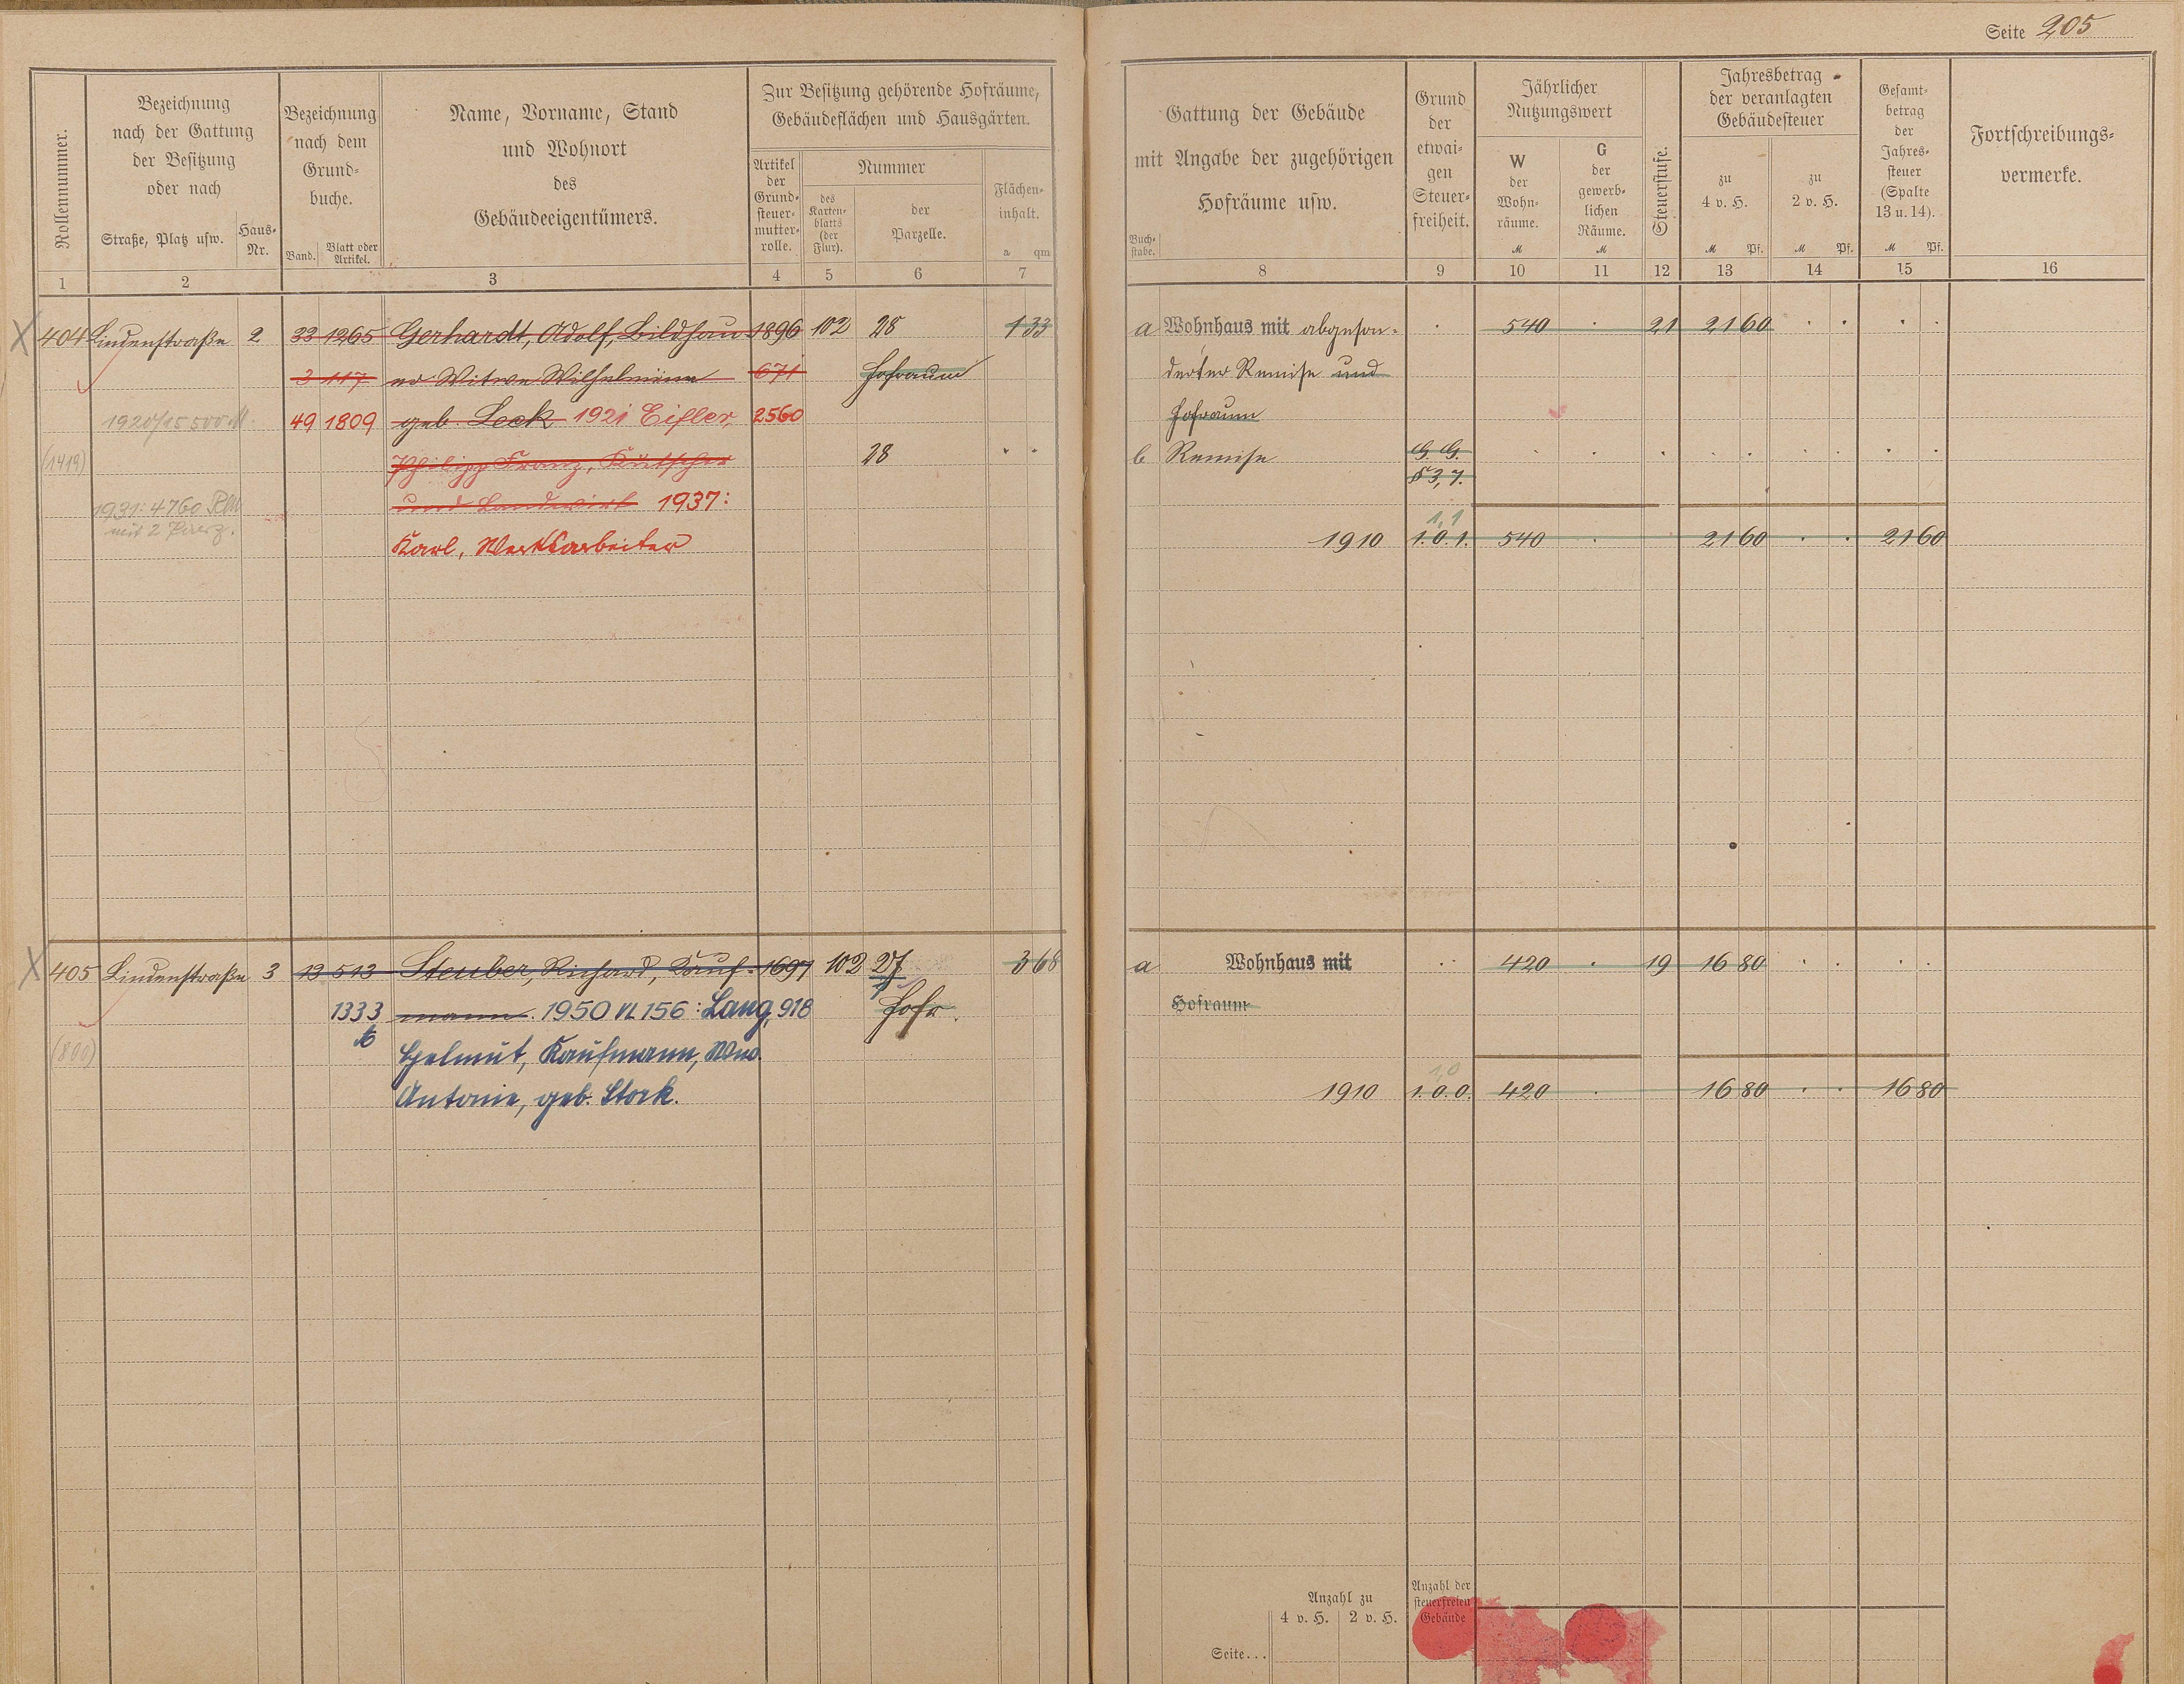 Seite 205
Rollennummer.
Bezeichnung
nach der Gattung
der Besitzung
oder nach
Straße, Platz usw.
Haus-
Nr.
Bezeichnung
nach dem
Grund-
buche.
Band.
Blatt oder
Artikel.
Name, Vorname, Stand
und Wohnort
des
Gebäudeeigentümers.
Zur Besitzung gehörende Hofräume,
Gebäudeflächen und Hausgärten.
Artikel
der
Grund-
steuer-
mutter-
rolle.
Nummer
des
Karten-
blatts
(der
Flur).
der
Parzelle.
Flächen-
inhalt.
a qm
Gattung der Gebäude
mit Angabe der zugehörigen
Hofräume usw.
Buch-
stabe.
Grund
der
etwai-
gen
Steuer-
freiheit.
Jährlicher
Nutzungswert
W
der
Wohn-
räume.
M
G
der
gewerb-
lichen
Räume.
M
Steuerstufe.
Jahresbetrag
der veranlagten
Gebäudesteuer
zu
4 v. H.
M Pf.
zu
2 v. H.
M Pf.
Gesamt-
betrag
der
Jahres-
steuer
(Spalte
13 u. 14).
M Pf.
Fortschreibungs-
vermerke.
1 2 3 4 5 6 7 8 9 10 11 12 13 14 15 16
404 Lindenstraße 2 33 1265 Gerhardt, Adolf, Bildhau 1896 102 28 1 33 a Wohnhaus mit abgeson- 540 21 21 60
3 117 er Witwe Wilhelmine 671 Hofraum derter Remise und
1920/15 500 M. 49 1809 geb. Leck 1921 Eifler, 2560 Hofraum
(1419) Philipp Franz, Kutscher 28 b Remise G. G.
§ 3, 7.
1931: 4760 RM und Landwirt 1937:
mit 2 Parz.
1,1
Karl, Werksarbeiter 1910 1. 0. 1. 540 21 60 21 60
405 Lindenstraße 3 13 513 Steuber, Richard, Kauf- 1697 102 27 3 68 a Wohnhaus mit 420 19 16 80
1333 mann. 1950 VL 156: Lang, 918 Hofr. Hofraum
(800) Helmut, Kaufmann, Wwe.
1,0
Antonie, geb. Stock. 1910 1. 0. 0. 420 16 80 16 80
Anzahl zu
4 v. H. 2 v. H.
Anzahl der
steuerfreien
Gebäude
Seite...